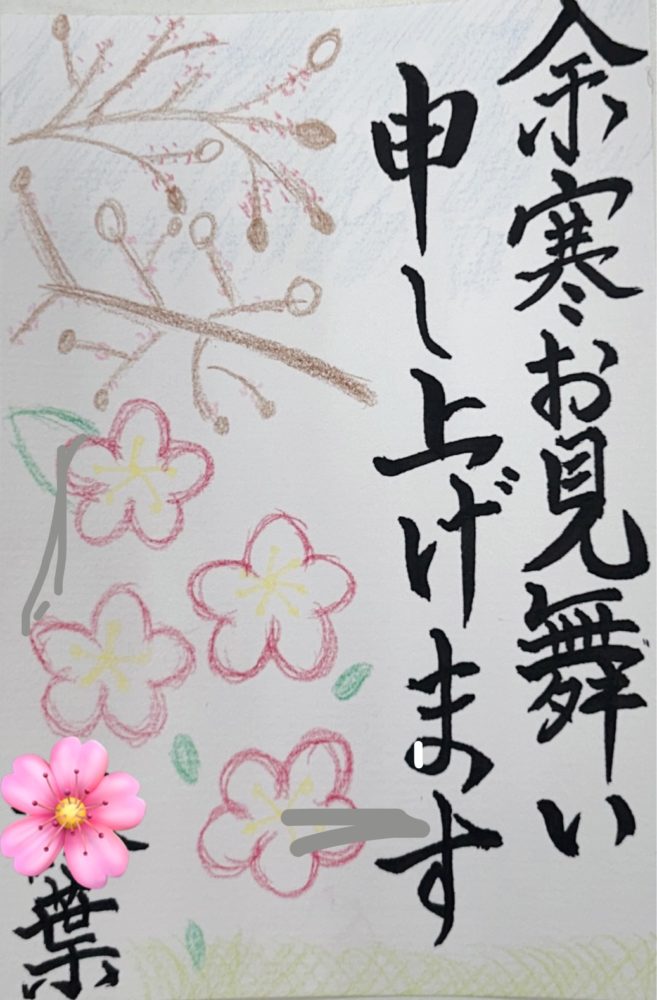 余寒お見舞い
申し上げます
葉